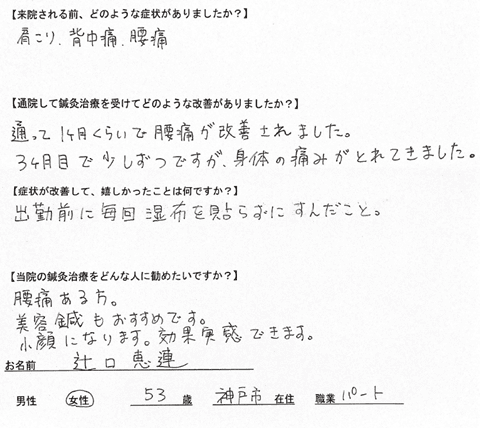 【来院される前、どのような症状がありましたか？】
肩こり、背中痛、腰痛
【通院して鍼灸治療を受けてどのような改善がありましたか？】
通って1ヶ月くらいで腰痛が改善されました。
3ヶ月目で少しずつですが、身体の痛みがとれてきました。
【症状が改善して、嬉しかったことは何ですか？】
出勤前に毎回湿布を貼らずにすんだこと。
【当院の鍼灸治療をどんな人に勧めたいですか？】
腰痛ある方。
美容鍼もおすすめです。
小顔になります。効果実感できます。
お名前 辻口恵連
男性 女性 53 歳 神戸市 在住 職業 パート